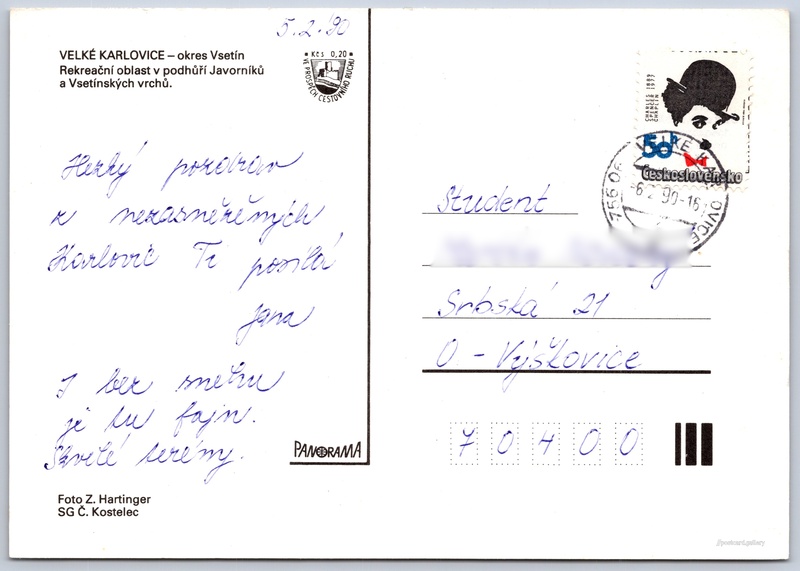 5.2.'90
VELKÉ KARLOVICE – okres Vsetín
Rekreační oblast v podhůří Javorníků
a Vsetínských vrchů.
Kčs 0,20
VE PROSPĚCH CESTOVNÍHO RUCHU
CHARLES SPENCER CHAPLIN
1889 1977
50h
Československo
756 06 VELKÉ KARLOVICE
-6.2.90-16
Hezký pozdrav
z nezasněžených
Karlovic Ti posílá
Jana
I bez sněhu
je tu fajn.
Skvělé terény.
Student
Srbská 21
O - Výškovice
70400
PANORAMA
Foto Z. Hartinger
SG Č. Kostelec
//postcard.gallery